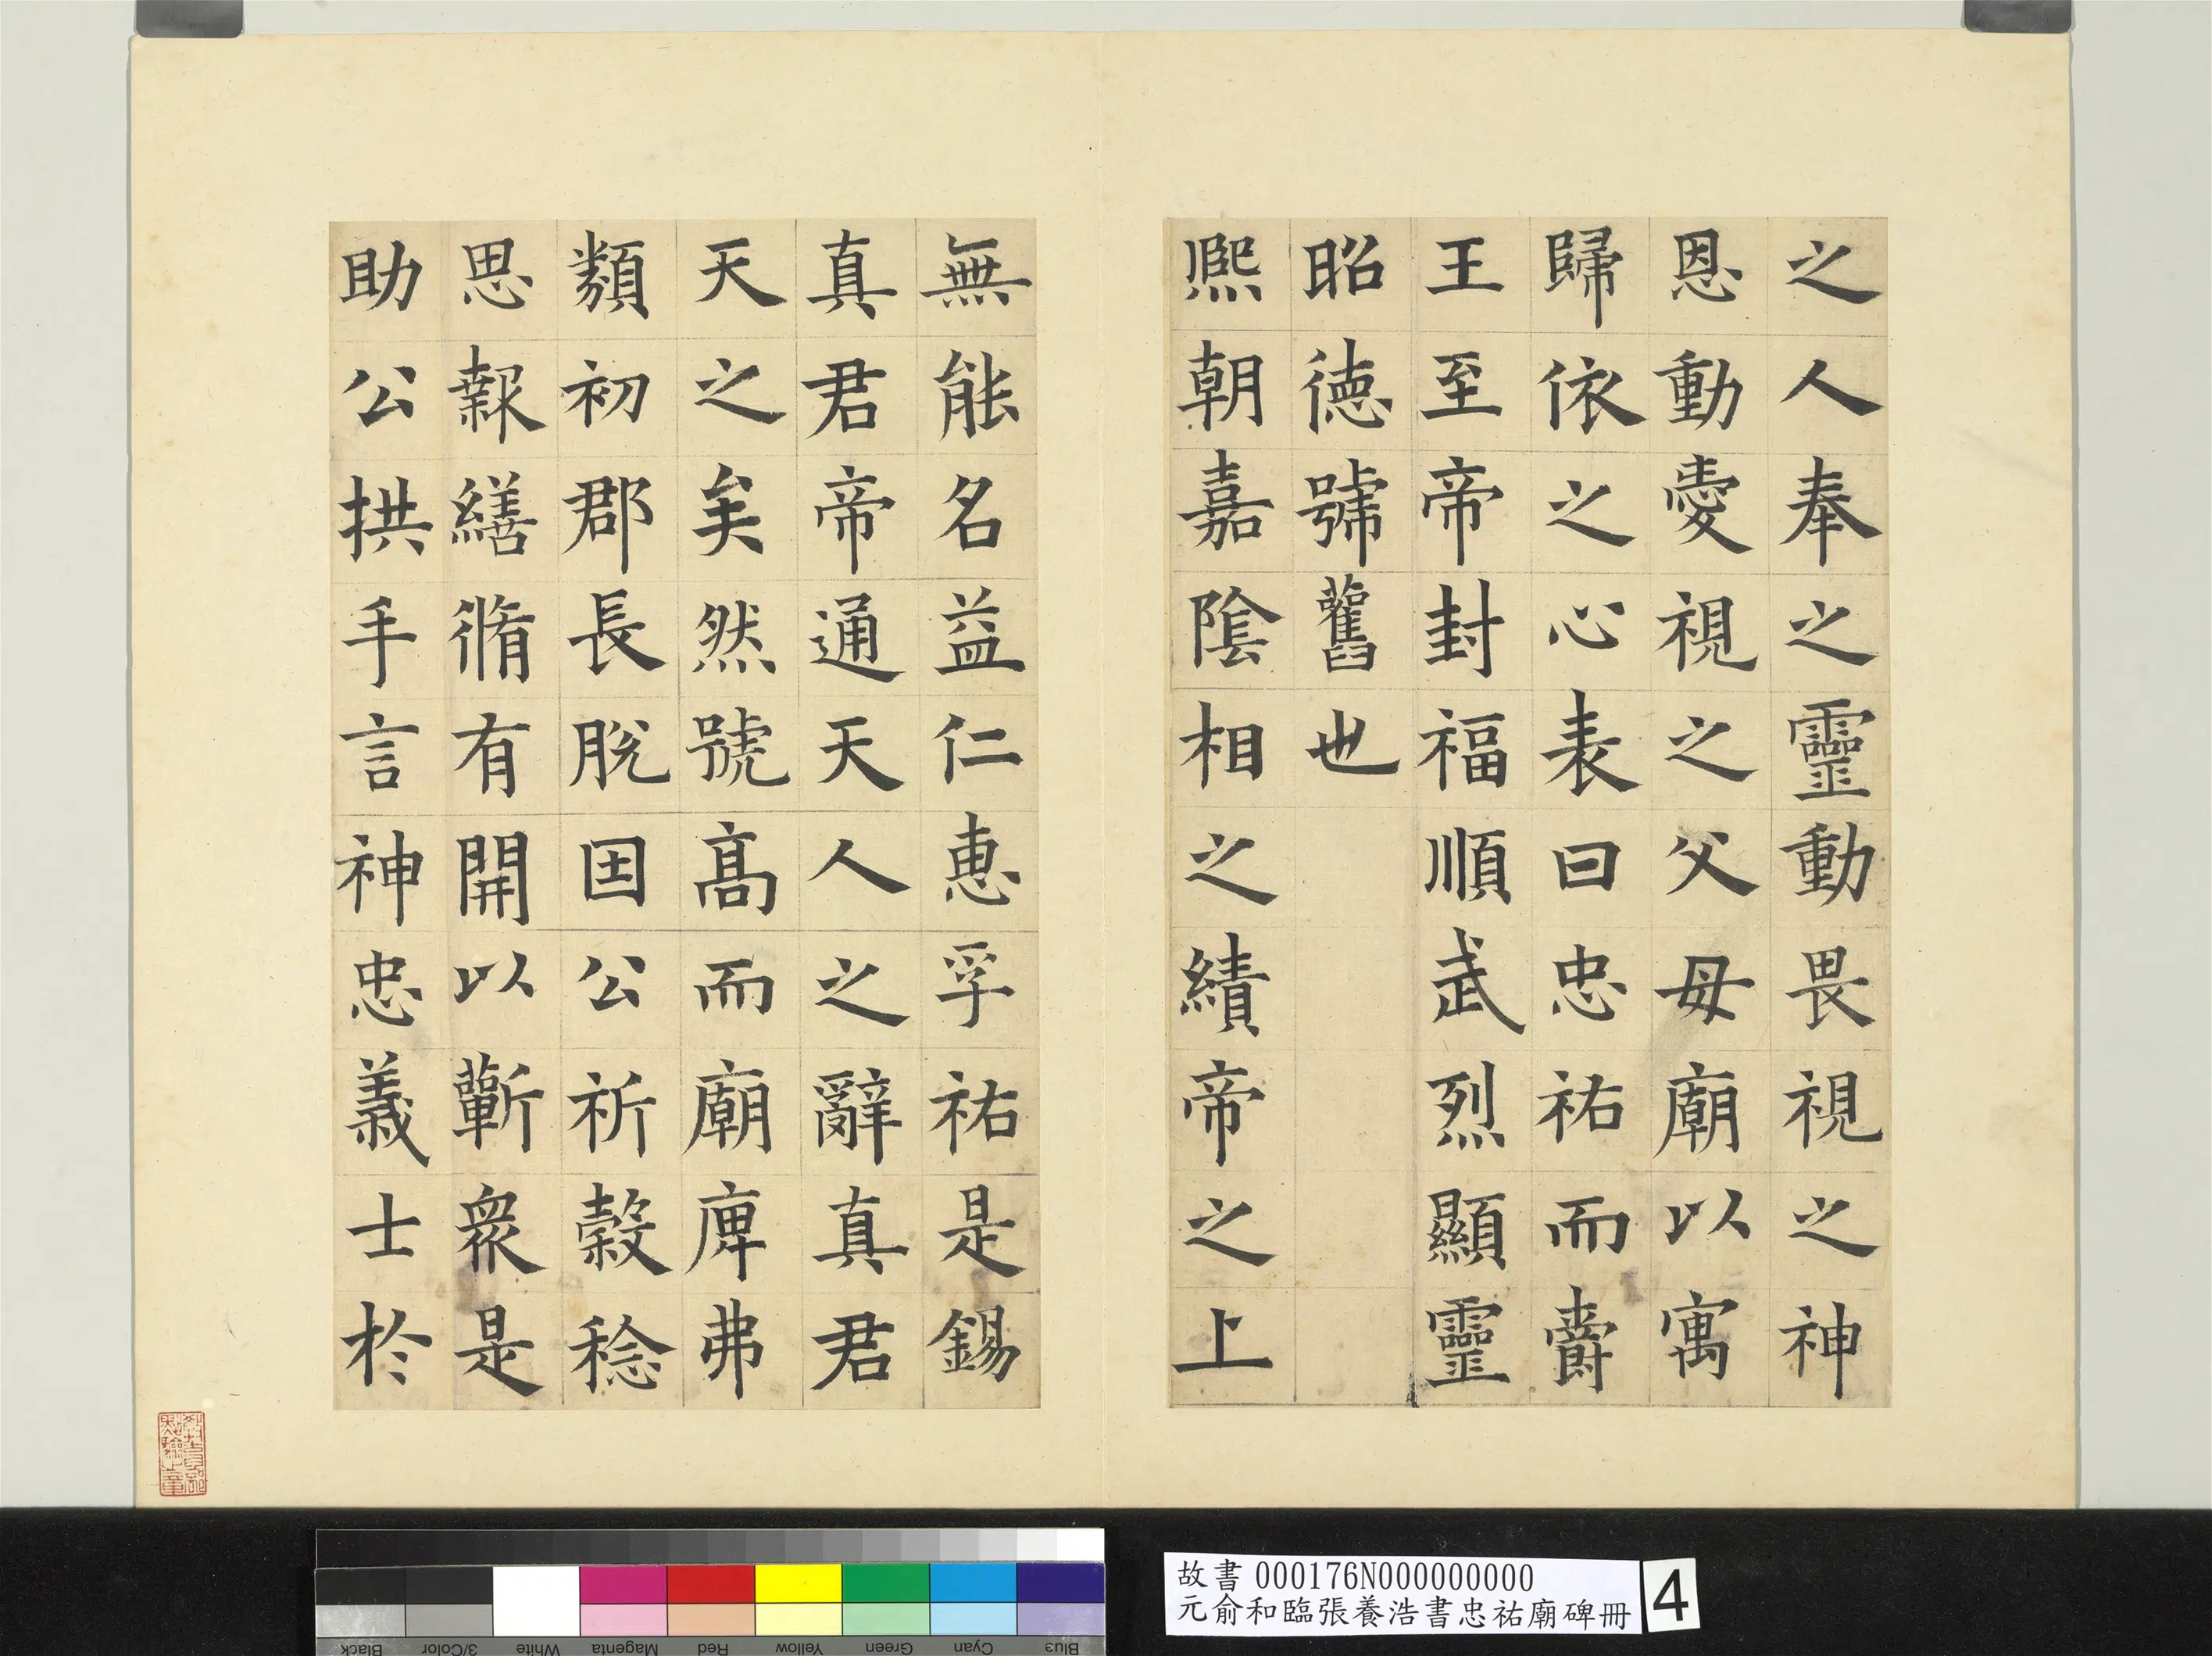 之人奉之靈動畏視之神
恩動愛視之父母廟以寓
歸依之心表曰忠祐而爵
王至帝封福順武烈顯靈
昭德號舊也
熙朝嘉陰相之績帝之上
無能名益仁惠孚祐是錫
真君帝通天人之辭真君
天之矣然號高而廟庳弗
類初郡長脫因公祈穀稔
思報繕脩有開以蘄衆是
助公拱手言神忠義士於
故書000176N000000000
元俞和臨張養浩書忠祐廟碑冊
4
Black 3/Color White Magenta Red Yellow Green Cyan Blue